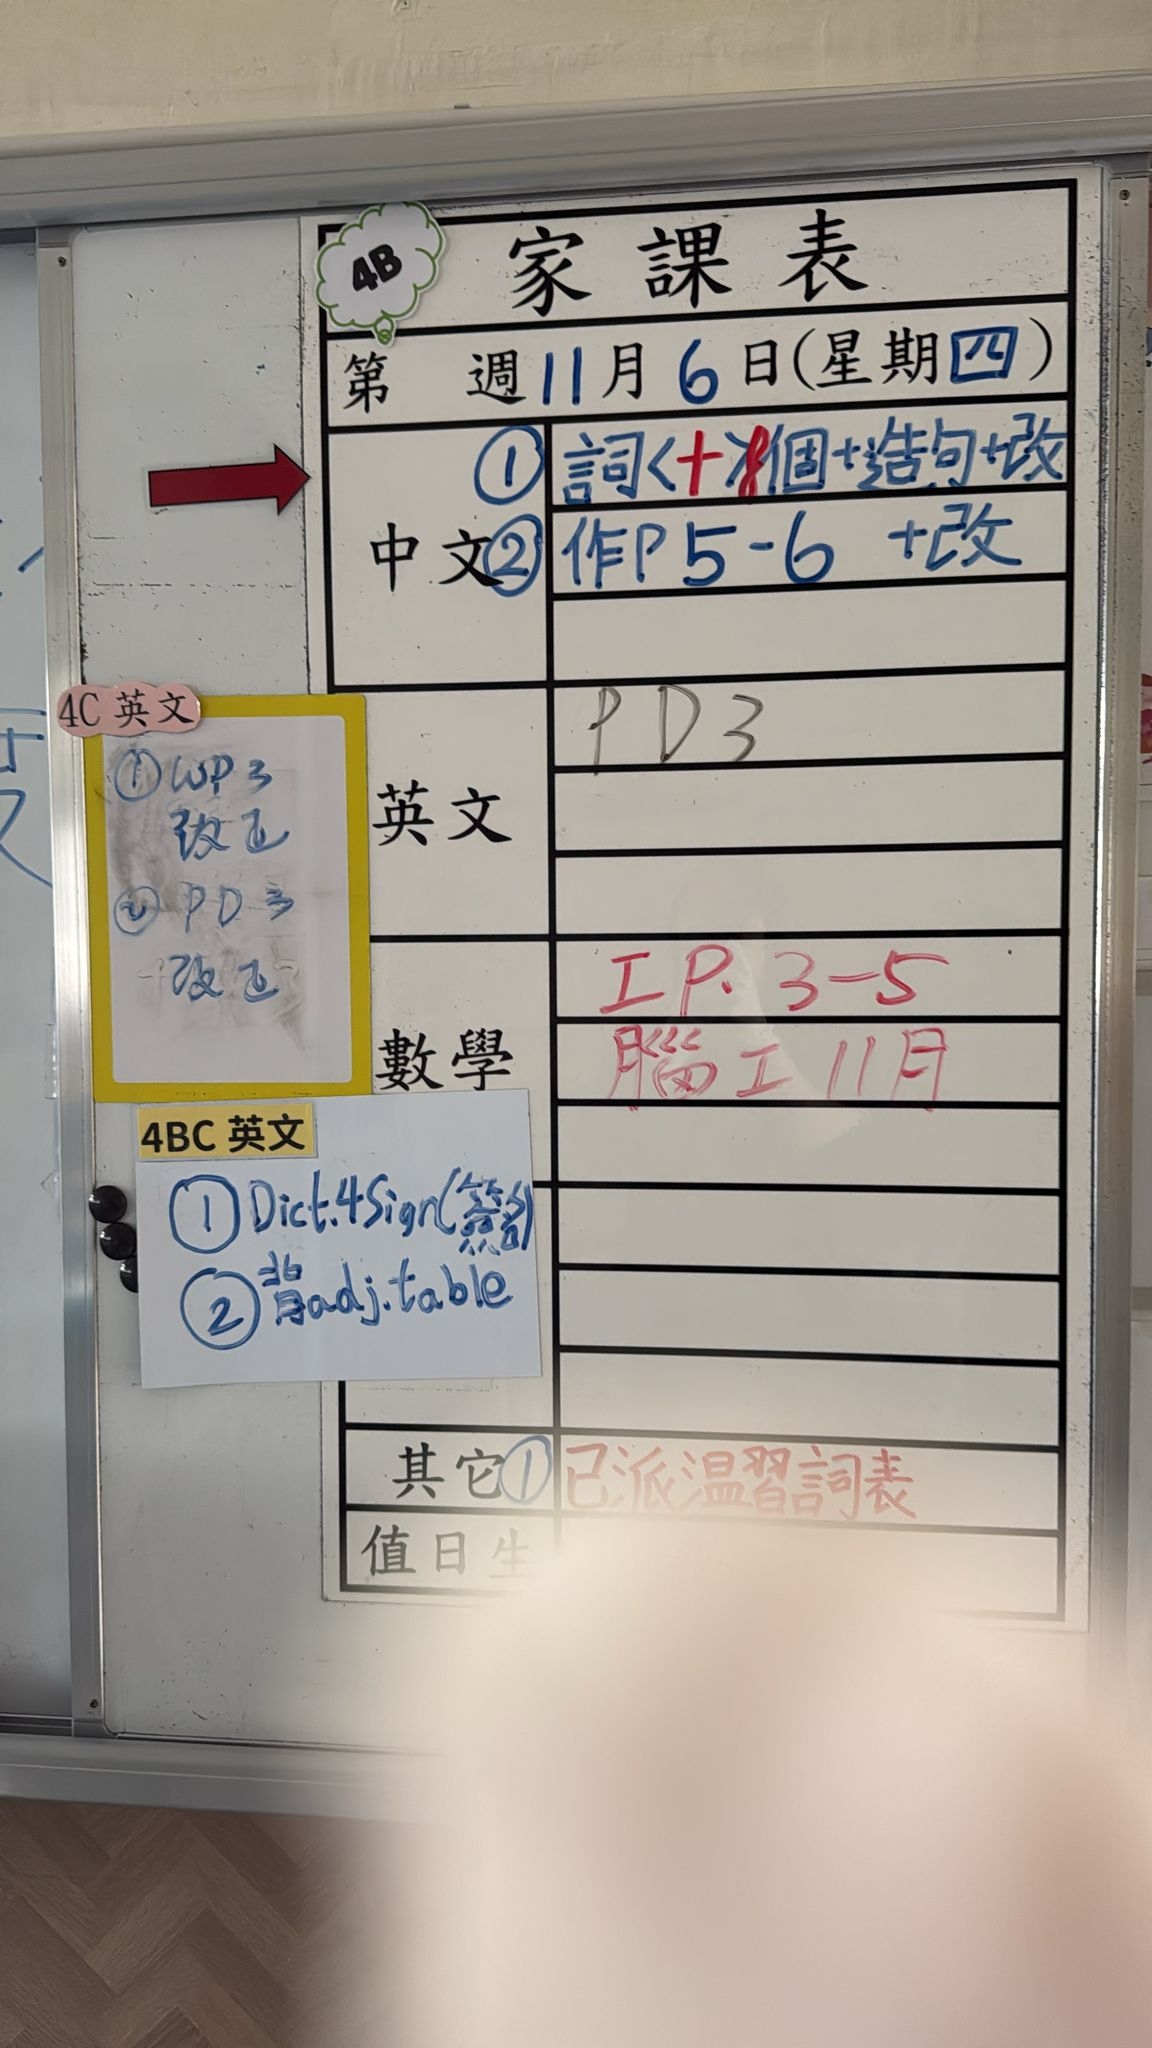 4B
家課表
第 週11月6日(星期四)
中文
① 詞<十>8個+造句+改
② 作P5-6 +改
英文
PD3
數學
工P. 3-5
腦工11月
其它
① 已派溫習詞表
值日生
4C 英文
① WP3
改正
② PD3
改正
4BC 英文
① Dict.4Sign(簽名)
② 背adj.table